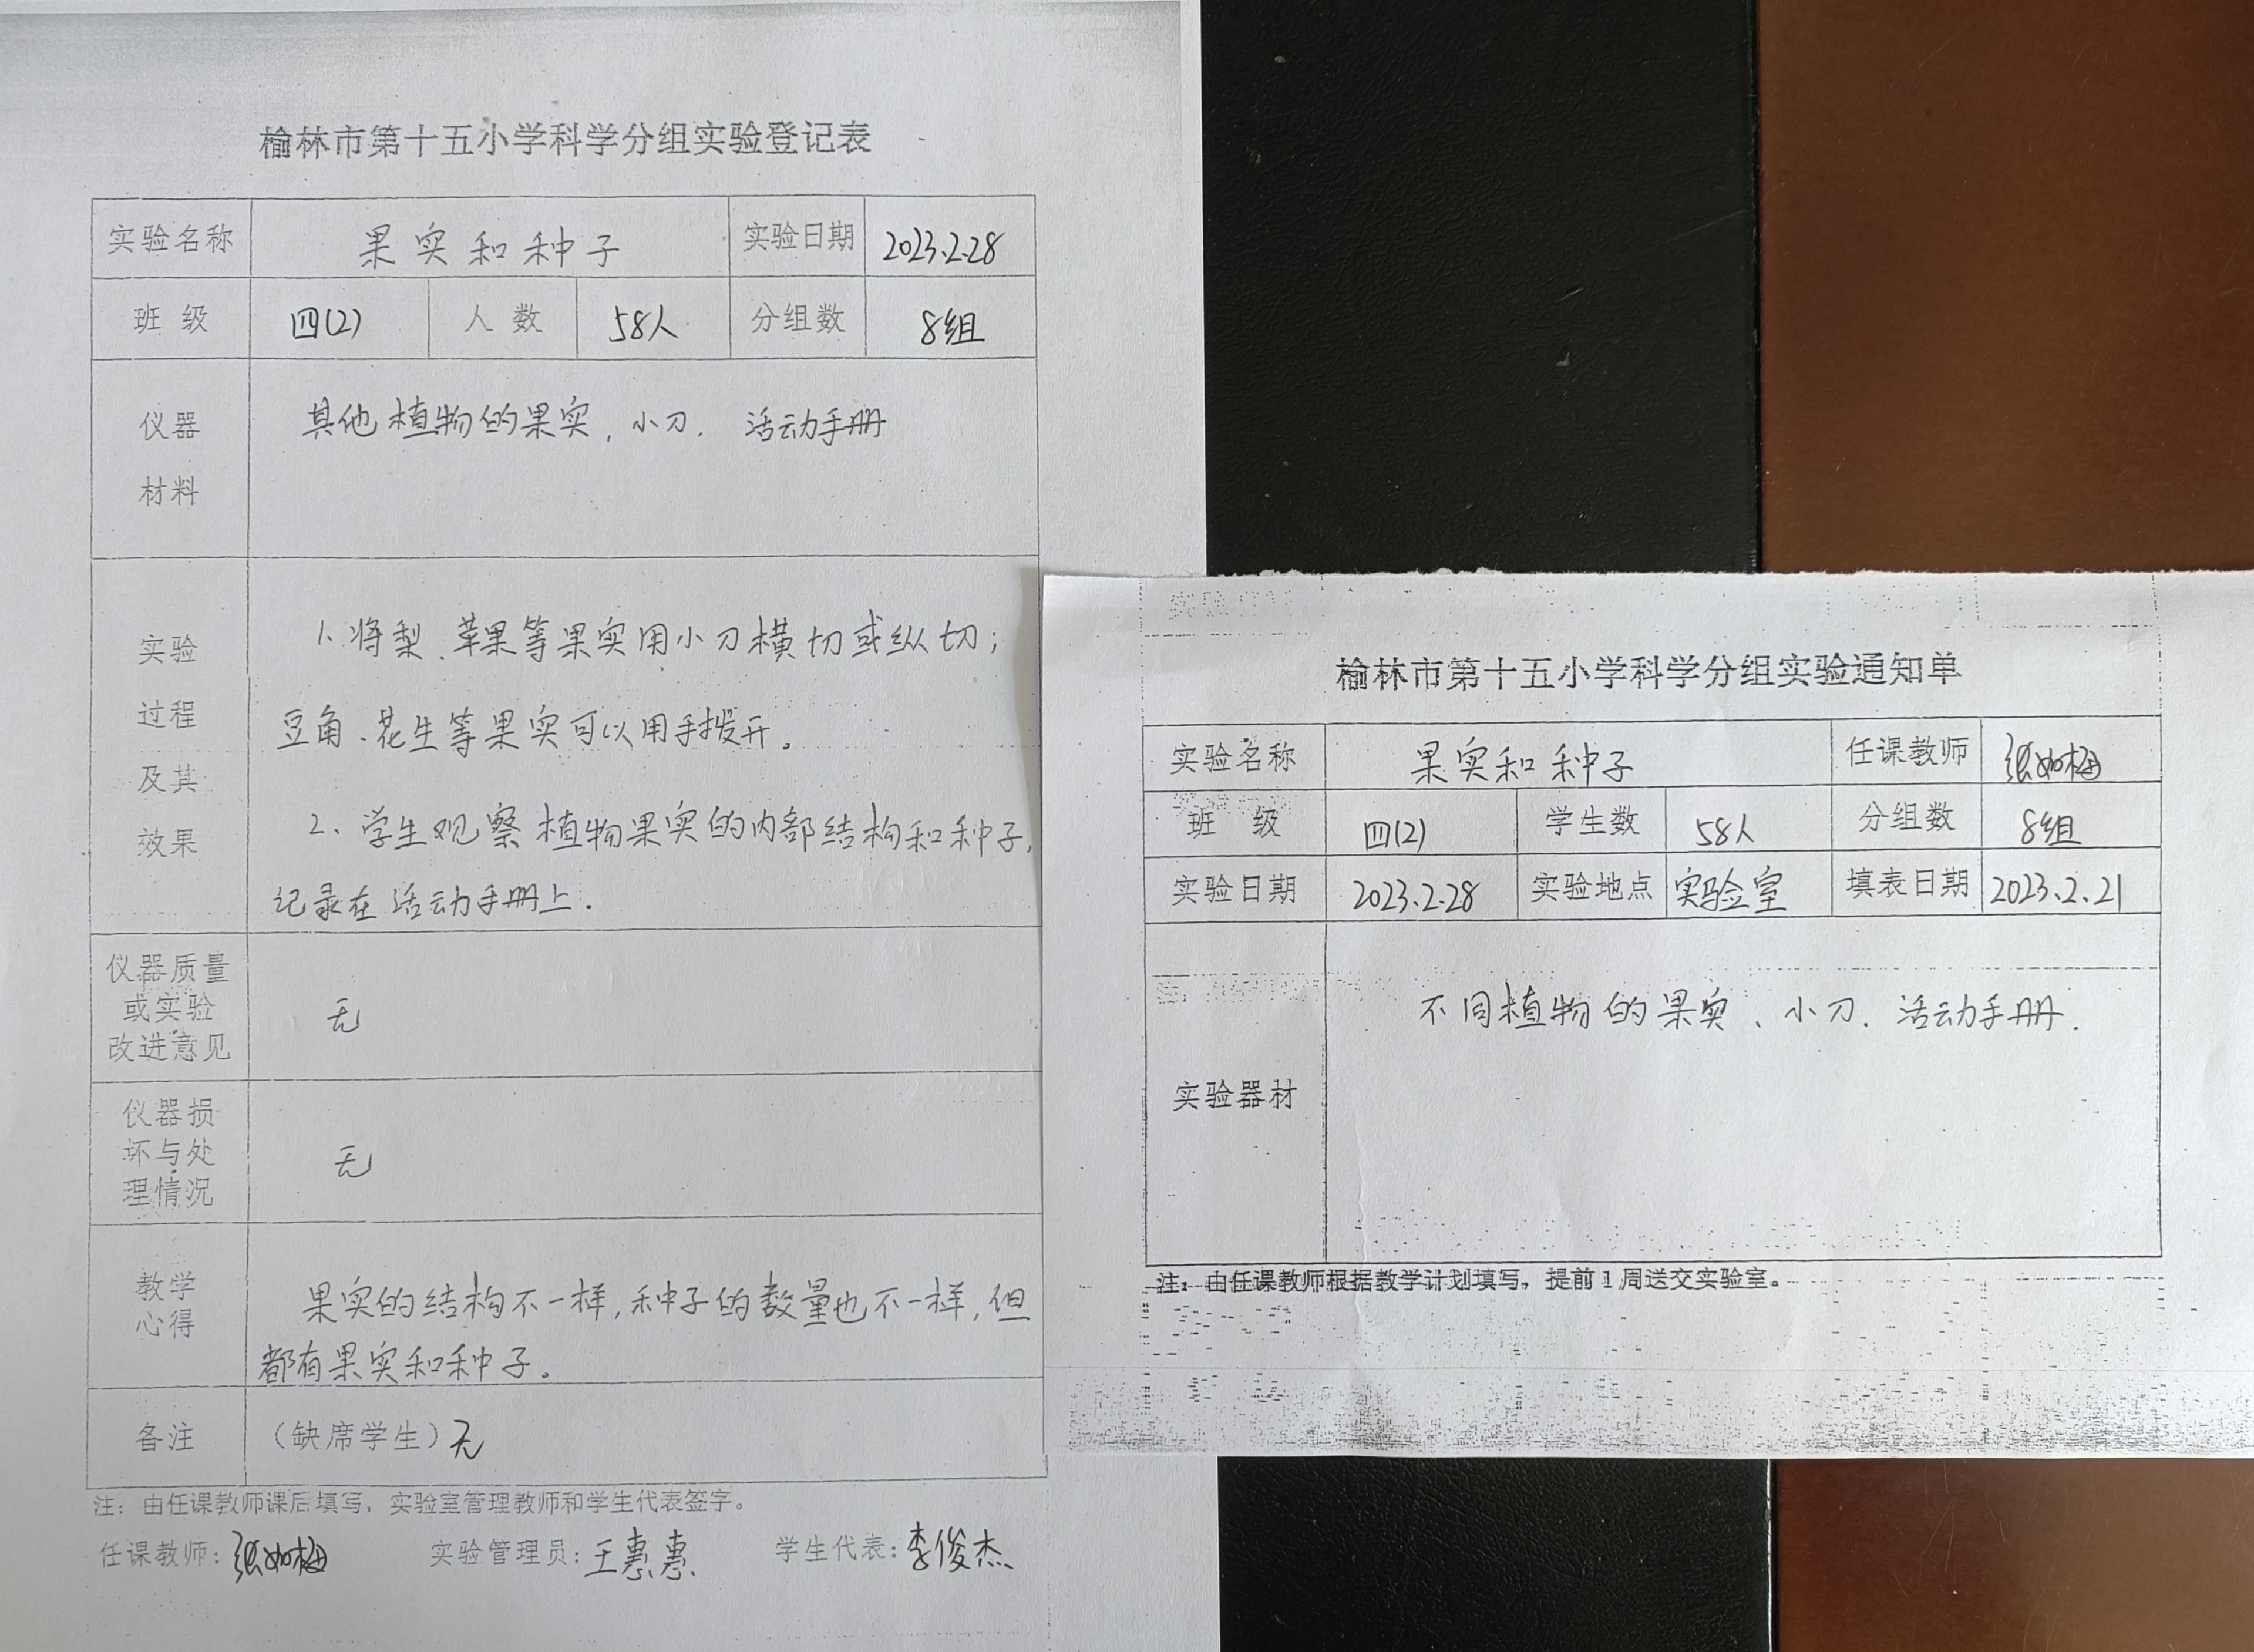 榆林市第十五小学科学分组实验登记表
实验名称 果实和种子 实验日期 2023.2.28
班 级 四(2) 人 数 58人 分组数 8组
仪器
材料
其他植物的果实, 小刀. 活动手册
实验
过程
及其
效果
1. 将梨、苹果等果实用小刀横切或纵切;
豆角、花生等果实可以用手拨开。
2、学生观察植物果实的内部结构和种子,
记录在活动手册上.
仪器质量
或实验
改进意见
无
仪器损
坏与处
理情况
无
教学
心得
果实的结构不一样,种子的数量也不一样,但
都有果实和种子。
备注 (缺席学生)无
注: 由任课教师课后填写, 实验室管理教师和学生代表签字。
任课教师: 张如梅 实验管理员: 王惠惠 学生代表: 李俊杰
榆林市第十五小学科学分组实验通知单
实验名称 果实和种子 任课教师 张如梅
班 级 四(2) 学生数 58人 分组数 8组
实验日期 2023.2.28 实验地点 实验室 填表日期 2023.2.21
实验器材
不同植物的果实、小刀. 活动手册.
注: 由任课教师根据教学计划填写, 提前1周送交实验室。